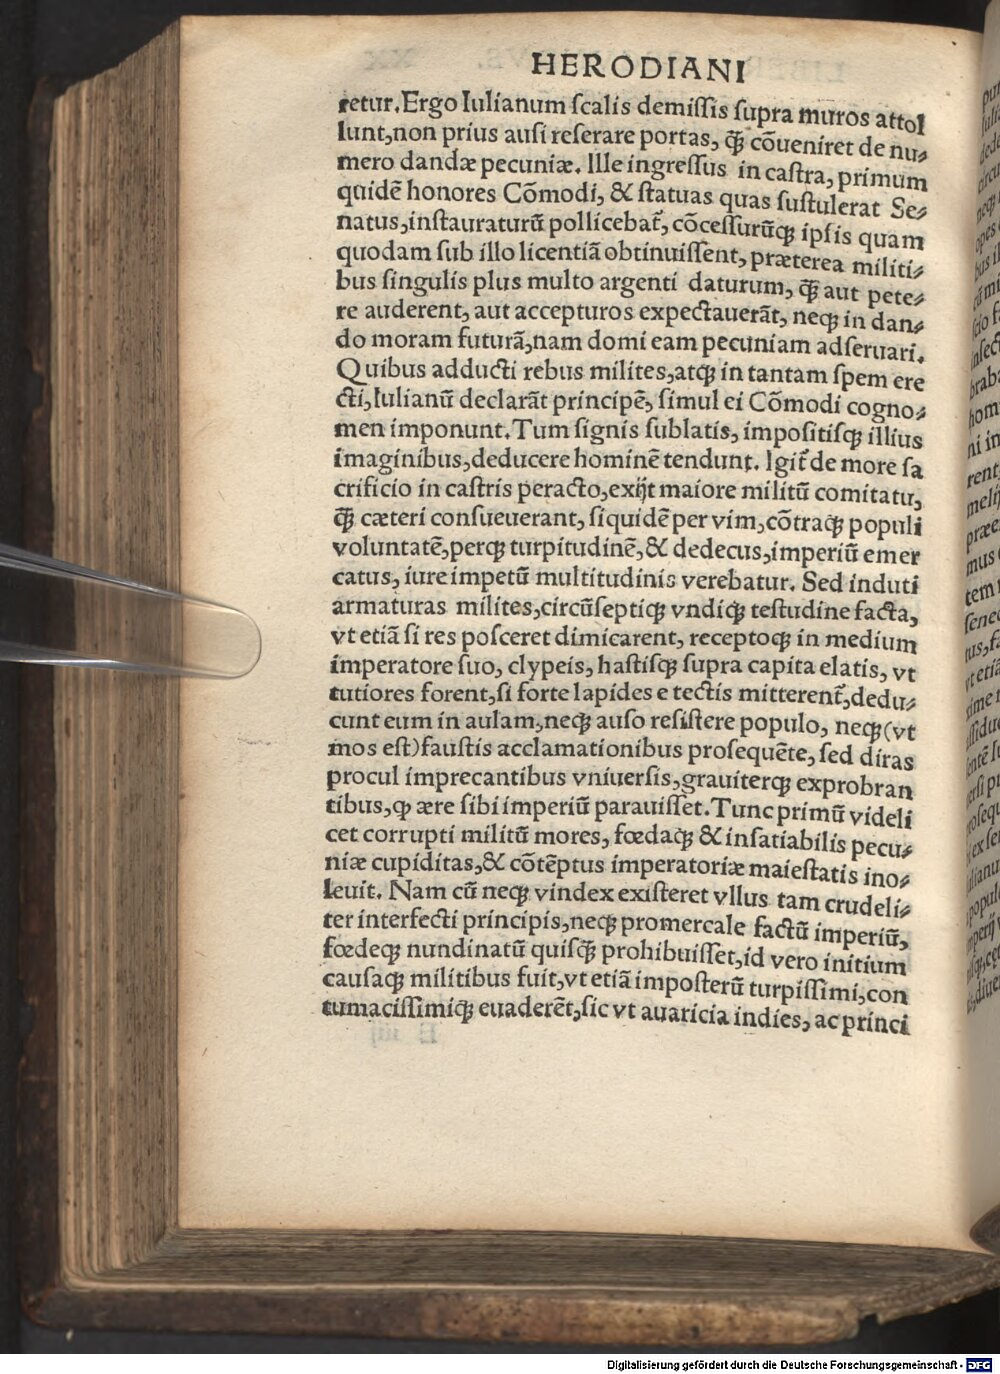 HERODIANI
retur. Ergo Iulianum ſcalis demiſſis ſupra muros attol
lunt, non prius auſi reſerare portas, ꝙ̃ cõueniret de nu⸗
mero dandæ pecuniæ. Ille ingreſſus in caſtra, primum
quidẽ honores Cõmodi, & ſtatuas quas ſuſtulerat Se⸗
natus, inſtauraturũ pollicebat᷑, cõceſſurũqꝫ ipſis quam
quodam ſub illo licentiã obtinuiſſent, præterea militi⸗
bus ſingulis plus multo argenti daturum, ꝙ̃ aut pete⸗
re auderent, aut accepturos expectauerãt, neqꝫ in dan⸗
do moram futurã, nam domi eam pecuniam adſeruari.
Quibus adducti rebus milites, atqꝫ in tantam ſpem ere
cti, Iulianũ declarãt principẽ, ſimul ei Cõmodi cogno⸗
men imponunt. Tum ſignis ſublatis, impoſitiſqꝫ illius
imaginibus, deducere hominẽ tendunt. Igit᷑ de more ſa
crificio in caſtris peracto, exijt maiore militũ comitatu,
ꝙ̃ cæteri conſueuerant, ſiquidẽ per vim, cõtraqꝫ populi
voluntatẽ, perqꝫ turpitudinẽ, & dedecus, imperiũ emer
catus, iure impetũ multitudinis verebatur. Sed induti
armaturas milites, circũſeptiqꝫ vndiqꝫ teſtudine facta,
vt etiã ſi res poſceret dimicarent, receptoqꝫ in medium
imperatore ſuo, clypeis, haſtiſqꝫ ſupra capita elatis, vt
tutiores forent, ſi forte lapides e tectis mitterent᷑, dedu⸗
cunt eum in aulam, neqꝫ auſo reſiſtere populo, neqꝫ (vt
mos eſt) fauſtis acclamationibus proſequẽte, ſed diras
procul imprecantibus vniuerſis, grauiterqꝫ exprobran
tibus, ꝙ ære ſibi imperiũ parauiſſet. Tunc primũ videli
cet corrupti militũ mores, fœdaqꝫ & inſatiabilis pecu⸗
niæ cupiditas, & cõtẽptus imperatoriæ maieſtatis ino⸗
leuit. Nam cũ neqꝫ vindex exiſteret vllus tam crudeli⸗
ter interfecti principis, neqꝫ promercale factũ imperiũ,
fœdeqꝫ nundinatũ quiſꝙ̃ prohibuiſſet, id vero initium
cauſaqꝫ militibus fuit, vt etiã impoſterũ turpiſſimi, con
tumaciſſimiqꝫ euaderẽt, ſic vt auaricia indies, ac princi
Digitalisierung gefördert durch die Deutsche Forschungsgemeinschaft - DFG